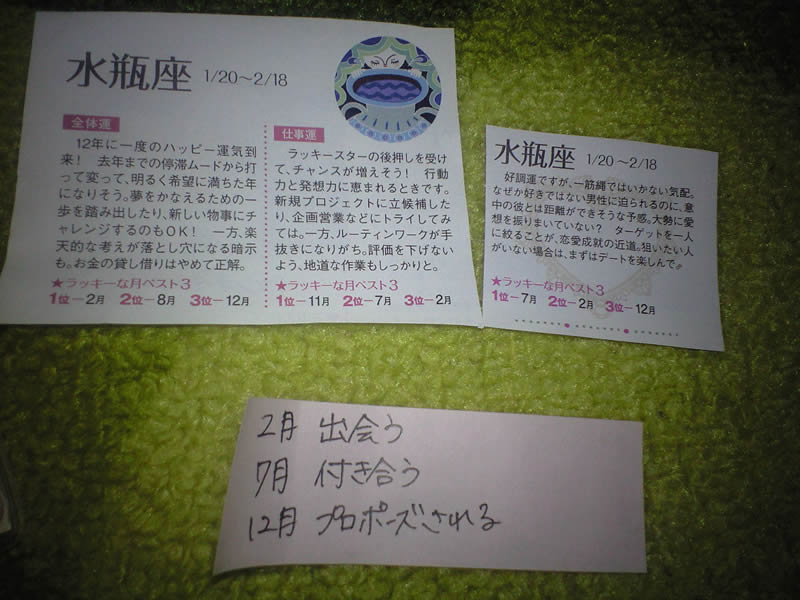 水瓶座 1/20〜2/18
全体運
12年に一度のハッピー運気到
来! 去年までの停滞ムードから打
って変って、明るく希望に満ちた年
になりそう。夢をかなえるための一
歩を踏み出したり、新しい物事にチ
ャレンジするのもOK! 一方、楽
天的な考えが落とし穴になる暗示
も。お金の貸し借りはやめて正解。
★ラッキーな月ベスト3
1位―2月 2位―8月 3位―12月
仕事運
ラッキースターの後押しを受け
て、チャンスが増えそう! 行動
力と発想力に恵まれるときです。
新規プロジェクトに立候補した
り、企画営業などにトライしてみ
ては。一方、ルーティンワークが手
抜きになりがち。評価を下げない
よう、地道な作業もしっかりと。
★ラッキーな月ベスト3
1位―11月 2位―7月 3位―2月
水瓶座 1/20〜2/18
好調運ですが、一筋縄ではいかない気配。
なぜか好きではない男性に迫られるのに、意
中の彼とは距離ができそうな予感。大勢に愛
想を振りまいていない? ターゲットを一人
に絞ることが、恋愛成就の近道。狙いたい人
がいない場合は、まずはデートを楽しんで。
★ラッキーな月ベスト3
1位―7月 2位―2月 3位―12月
2月 出会う
7月 付き合う
12月 プロポーズされる